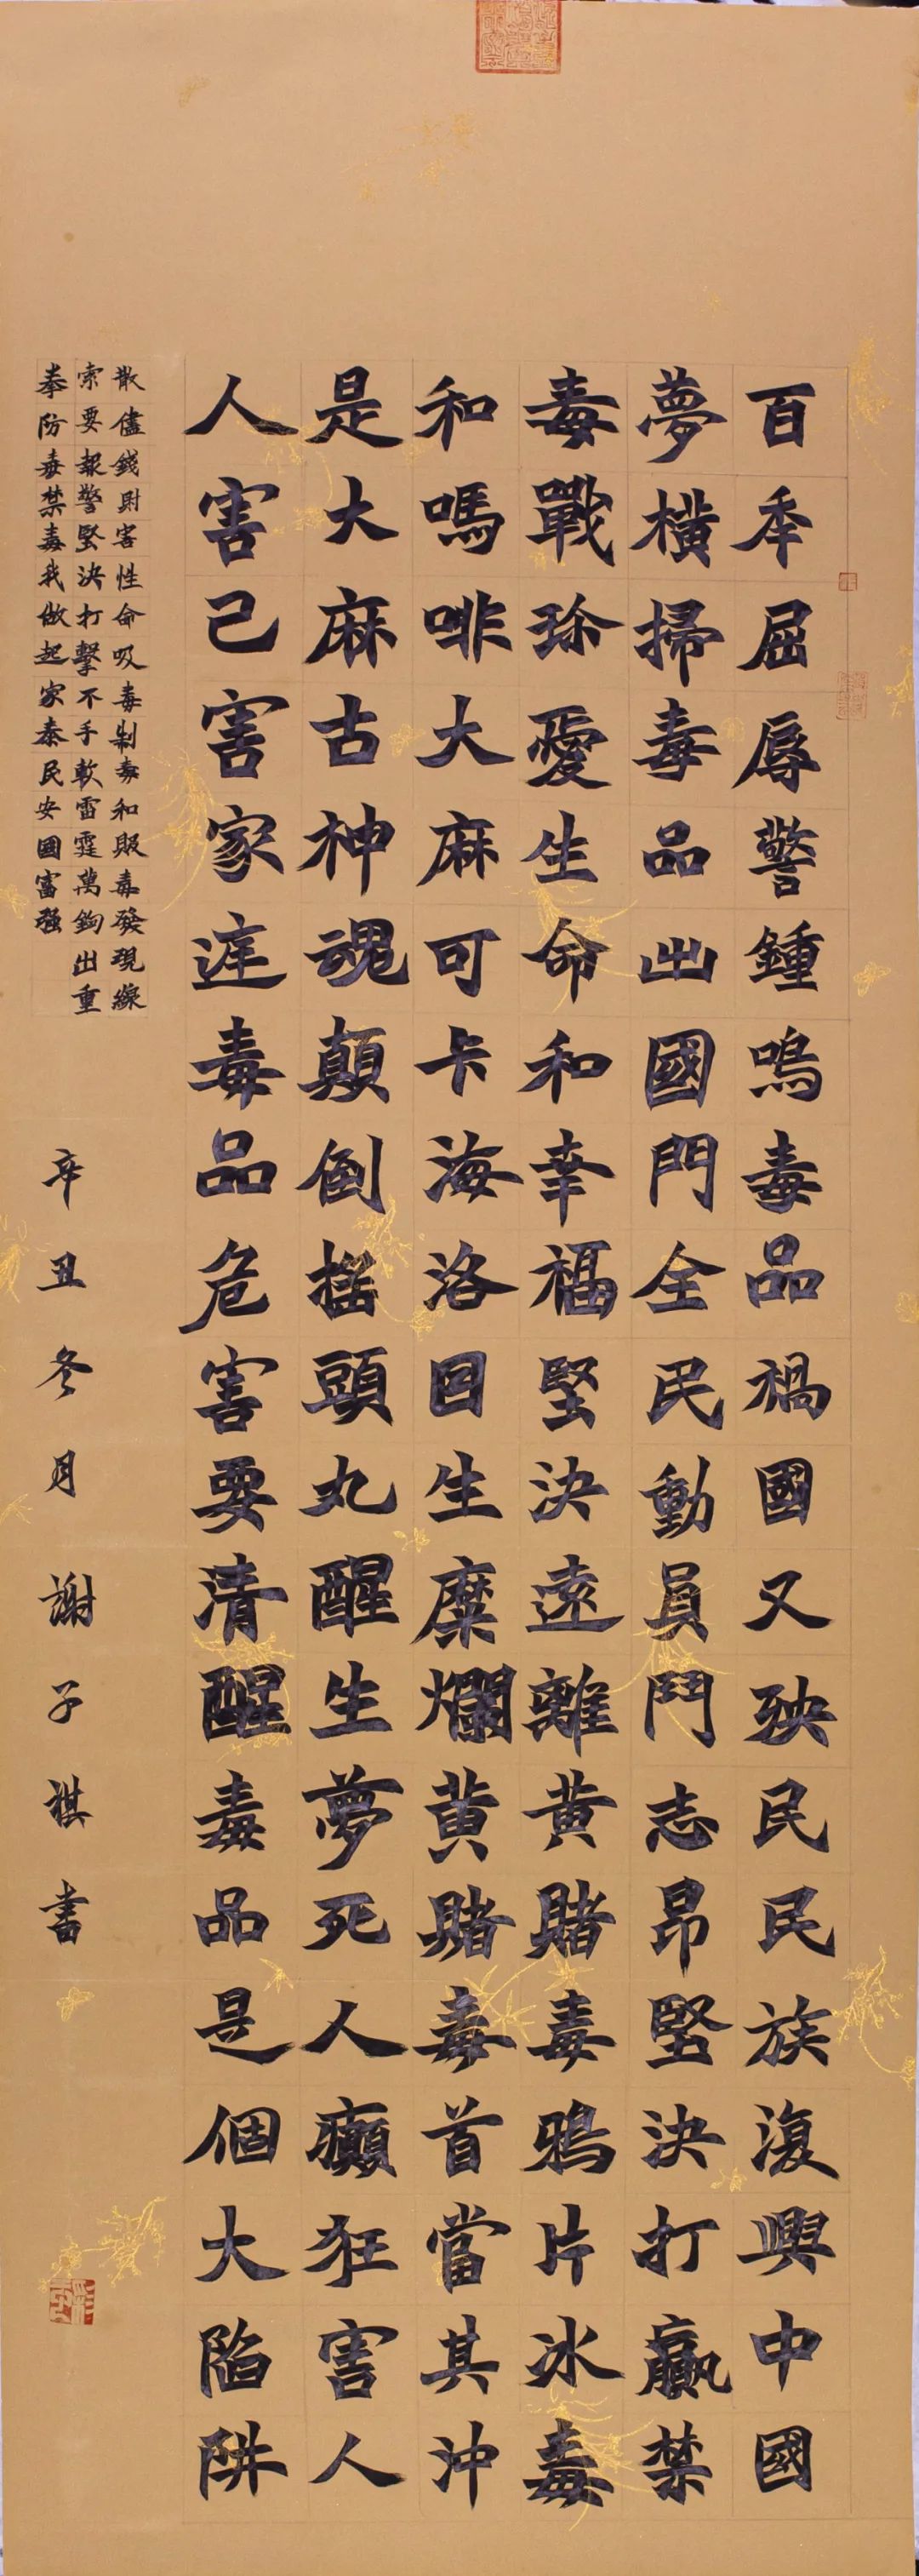 百年屈辱警鍾鳴毒品禍國又殃民民族復興中國
夢橫掃毒品出國門全民動員鬥志昂堅決打贏禁
毒戰珍愛生命和幸福堅決遠離黄賭毒鴉片冰毒
和嗎啡大麻可卡海洛回生糜爛黄賭毒首當其沖
是大麻古神魂顛倒摇頭丸醒生夢死人癲狂害人
人害己害家庭毒品危害要清醒毒品是個大陷阱
散儘錢財害性命吸毒制毒和販毒發現線
索要報警堅決打擊不手軟雷霆萬鈞出重
拳防毒禁毒我做起家泰民安國富强
辛丑冬月謝子祺書